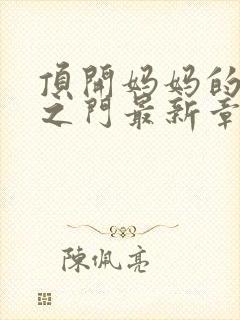 頂開妈妈的
之門最新章
陳佩亮